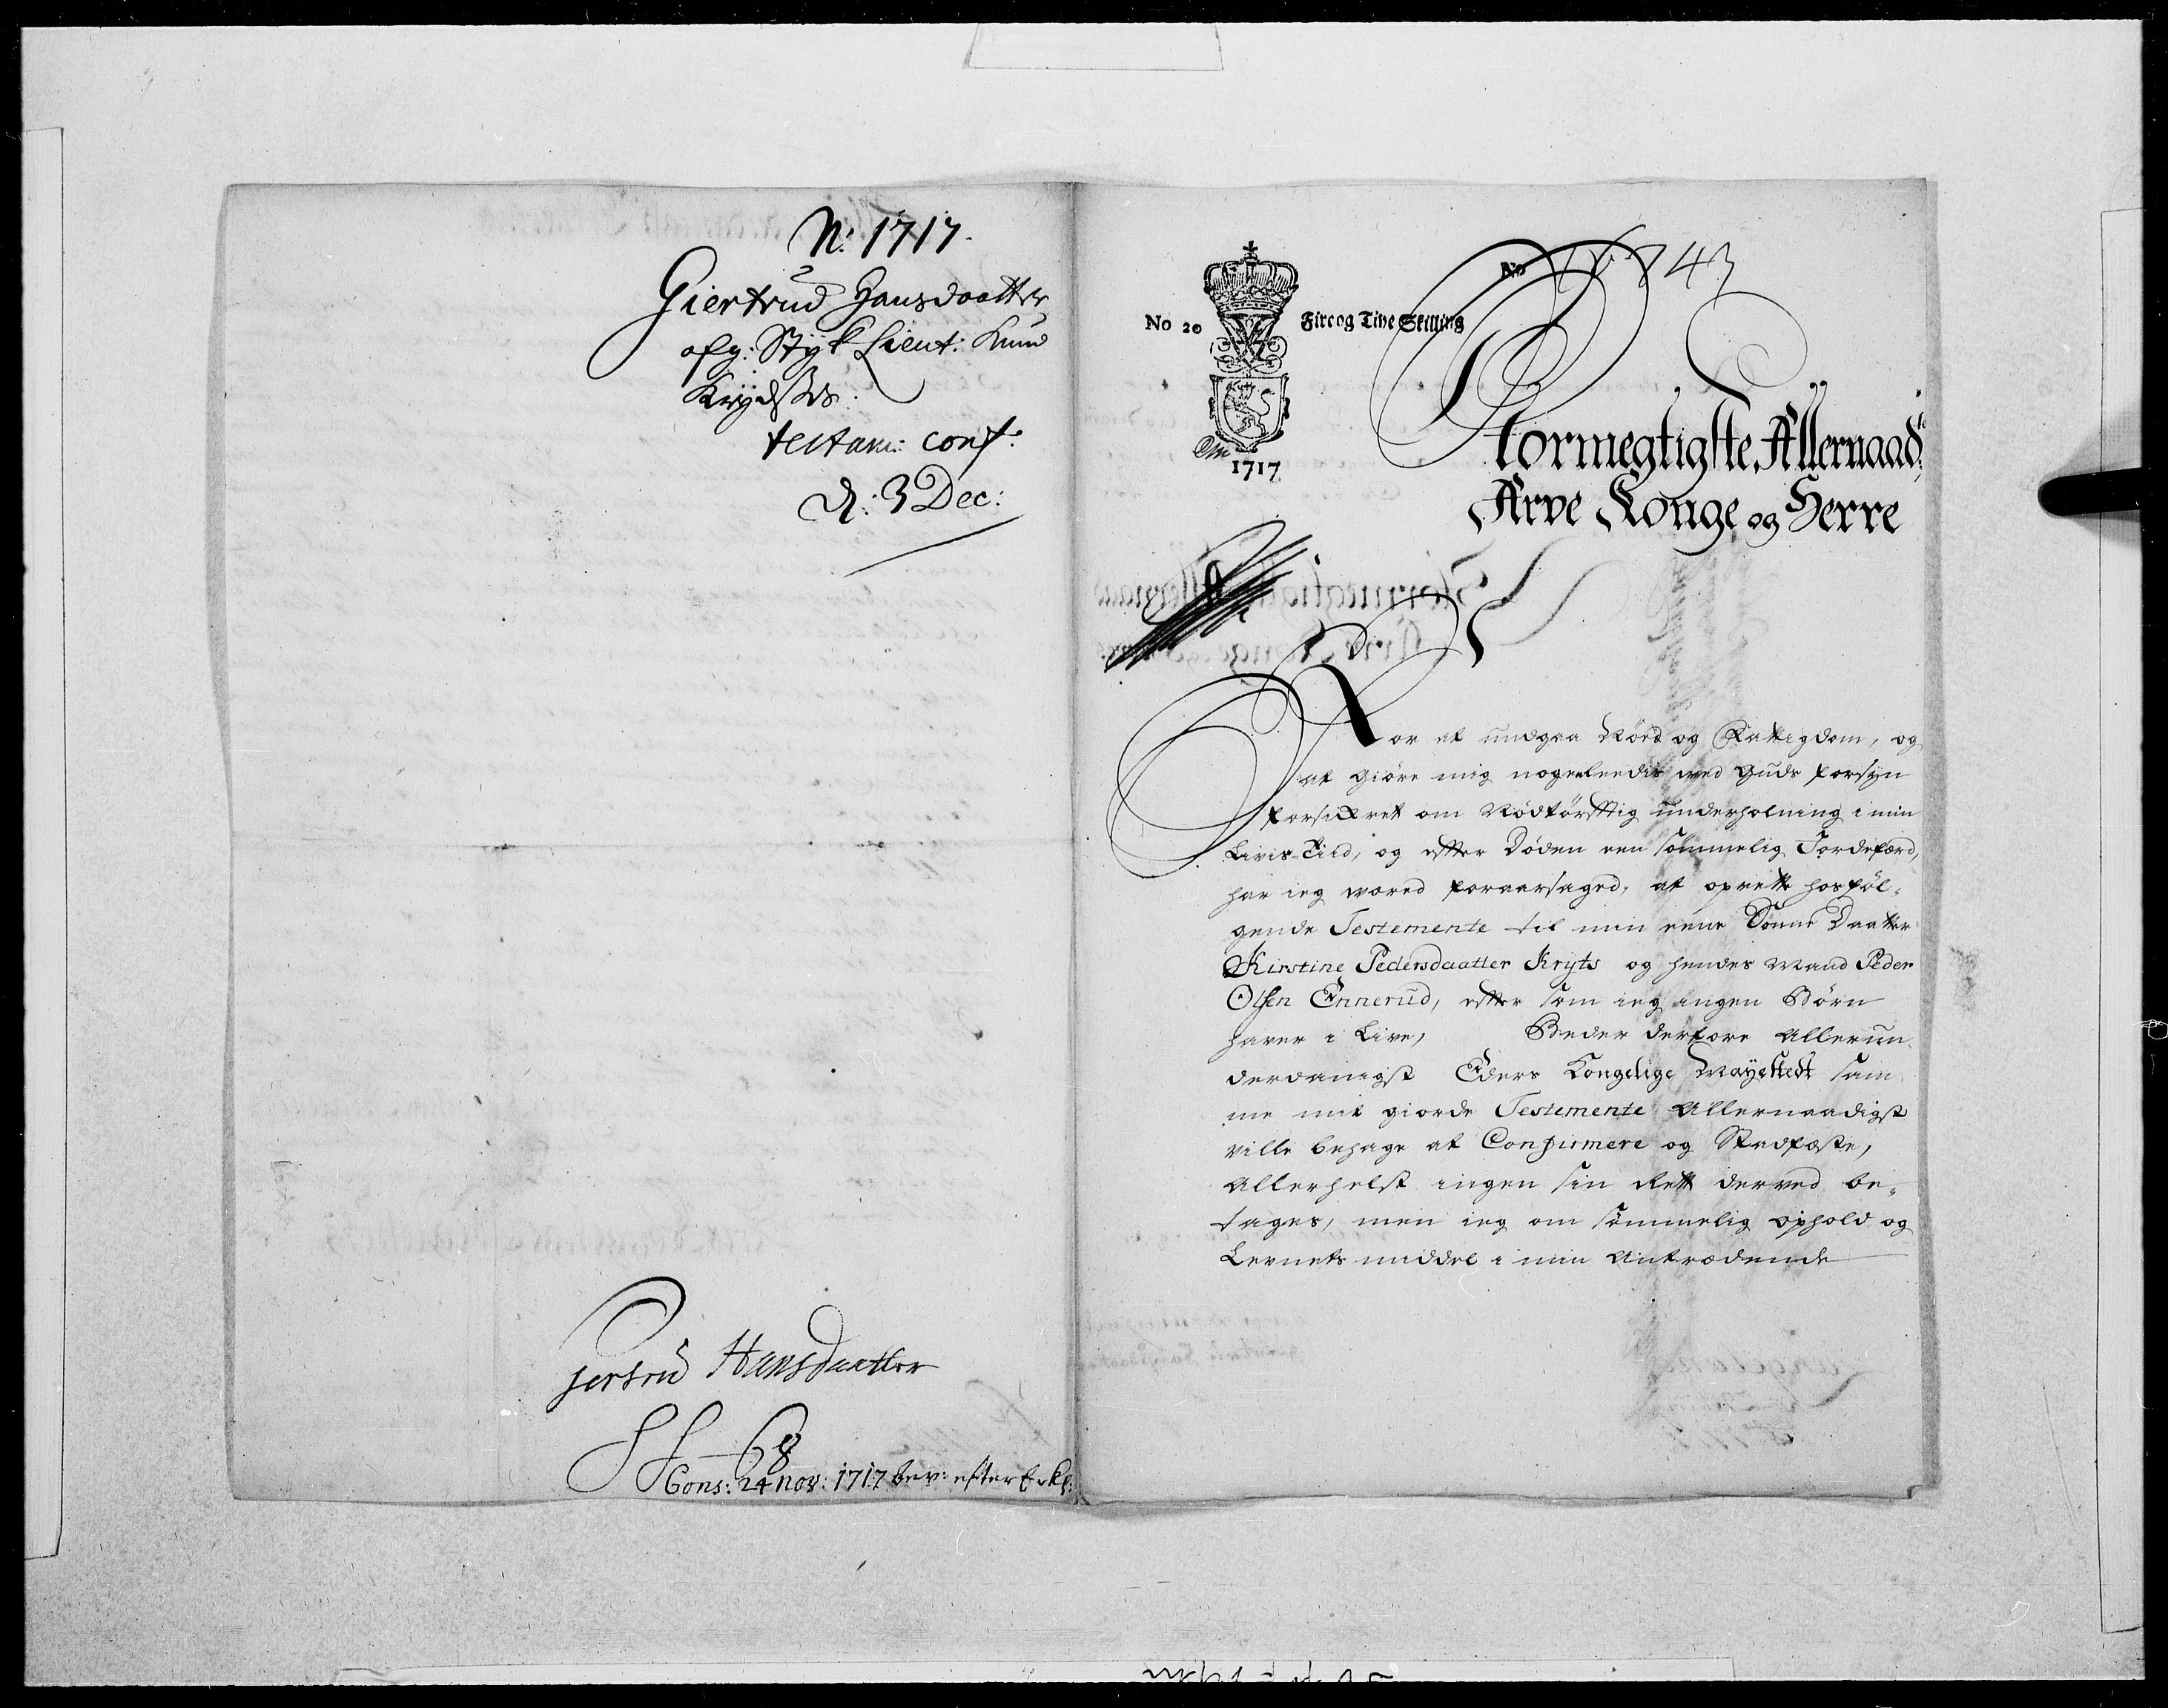 N: 1717.
Giertrud Hansdaatter
afg: Styk Lieut: Knud
Krydsses:
testam: conf:
D: 3 Dec:
Jertrud Hansdaatter
68
Cons: 24 nov: 1717 bev: efter Erkl:
No 20
Fire og Tive Skilling
No
1717
Stormegtigste, Allernaad:ste
Arve Konge og Herre
For at undgaa Nöed og Fattigdom, og
at giöre mig nogenleedis wed Guds forsyn
forsickret om Nödtörfftig underholning i min
Livis-Tiid, og effter Döden een sömmelig Jordefærd,
har ieg wæred foraarsaged, at oprette hosföl-
gende Testemente til min eene Sönne Daatter
Kirstine Pedersdaatter Kryts og hendes Mand Peder
Olsen Ennerud, effter som ieg ingen Börn
haver i Live, Beder derfore Allerun
derdanigst Eders Kongelige Mayestedt sam
me mit giorde Testemente Allernaadigst
ville behage at Confirmere og Stadfæste,
Allerhelst ingen sin Rett derved be-
tages, men ieg om sömmelig ophold og
Levnets middel i min Antrædende